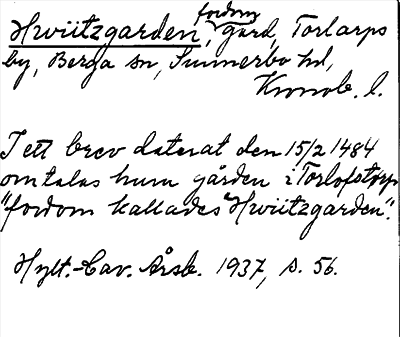 Hwiitzgarden, fordom gård, Torlarps
by, Berga sn, Sunnerbo hd,
Kronob. l.
I ett brev daterat den 15/2 1484
omtalas hum gården i Torlofstorp
"fordom kallades Hwiitzgarden".
Hylt.-Cav. Årsb. 1937, s. 56.